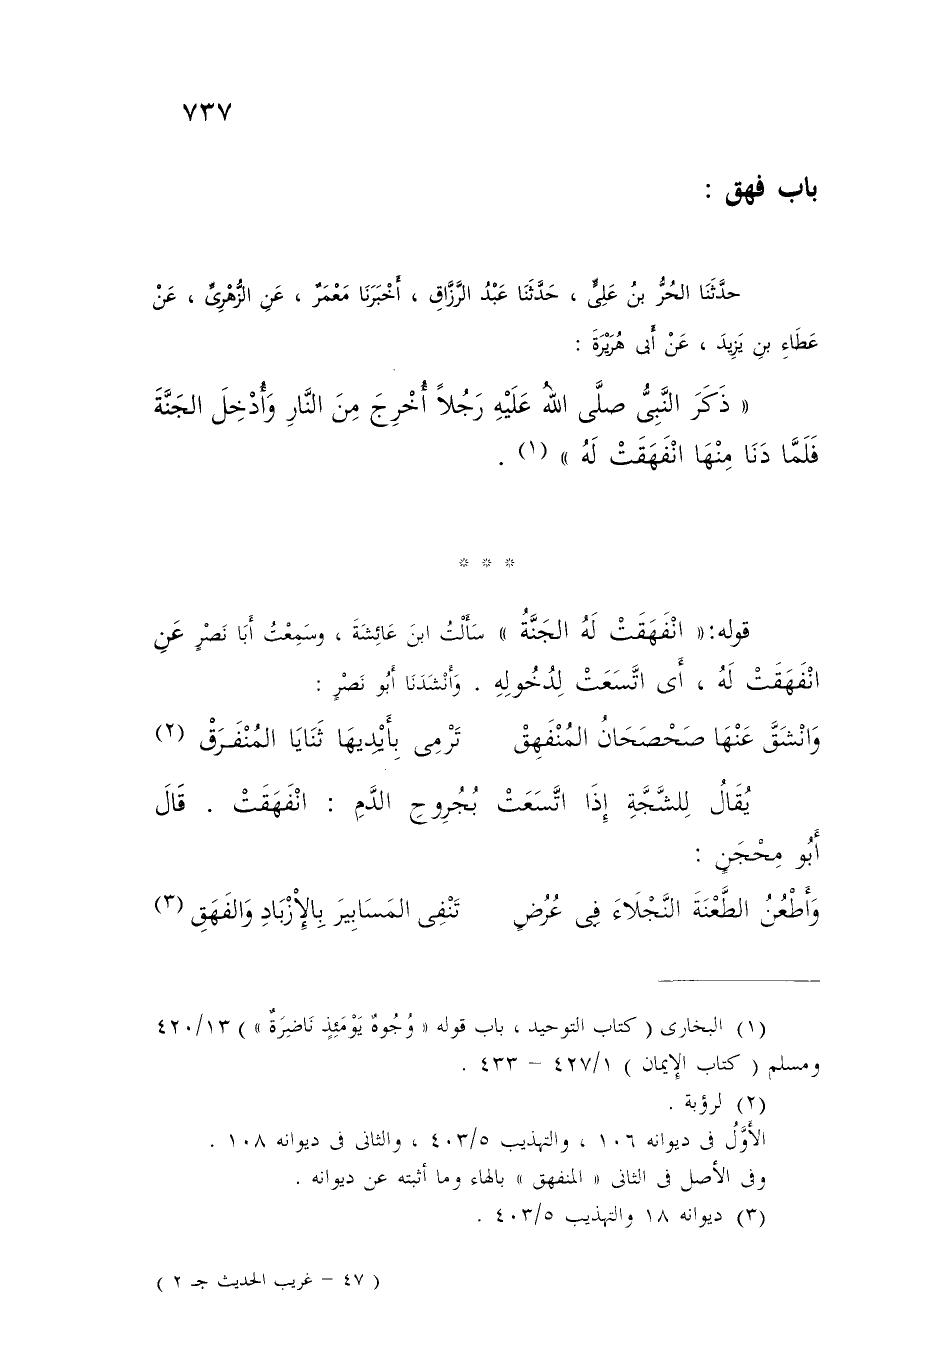 ٧٣٧
باب فهق :
حدَّثَنَا الحُرُّ بنُ عَلِىٍّ ، حَدَّثَنَا عَبْدُ الرَّزَّاقِ ، أَخْبَرَنَا مَعْمَرٌ ، عَنِ الزُّهْرِىِّ ، عَنْ
عَطَاءِ بنِ يَزِيدَ ، عَنْ أَبى هُرَيْرَةَ :
« ذَكَرَ النَّبِىُّ صلَّى اللهُ عَلَيْهِ رَجُلاً أُخْرِجَ مِنَ النَّارِ وَأُدْخِلَ الجَنَّةَ
فَلَمَّا دَنَا مِنْهَا انْفَهَقَتْ لَهُ » (١) .
* * *
قوله: « انْفَهَقَتْ لَهُ الجَنَّةُ » سَأَلْتُ ابنَ عَائِشَةَ ، وسَمِعْتُ أَبَا نَصْرٍ عَنِ
انْفَهَقَتْ لَهُ ، أَى اتَّسَعَتْ لِدُخُولِهِ . وَأَنْشَدَنَا أَبُو نَصْرٍ :
وَانْشَقَّ عَنْهَا صَحْصَحَانُ المُنْفَهِقْ تَرْمِى بِأَيْدِيهَا ثَنَايَا المُنْفَرَقْ (٢)
يُقَالُ لِلشَّجَّةِ إِذَا اتَّسَعَتْ بُجُروحِ الدَّمِ : انْفَهَقَتْ . قَالَ
أَبُو مِحْجَنٍ :
وَأَطْعُنُ الطَّعْنَةَ النَّجْلَاءَ فِى عُرُضٍ تَنْفِى المَسَابِيرَ بِالإِزْبَادِ وَالفَهَقِ (٣)
(١) البخارى ( كتاب التوحيد ، باب قوله « وُجُوهٌ يَوْمَئِذٍ نَاضِرَةٌ » ) ٤٢٠/١٣
ومسلم ( كتاب الإيمان ) ٤٢٧/١ – ٤٣٣ .
(٢) لرؤبة .
الأوَّلُ فى ديوانه ١٠٦ ، والتهذيب ٤٠٣/٥ ، والثانى فى ديوانه ١٠٨ .
وفى الأصل فى الثانى « المنفهق » بالهاء وما أثبته عن ديوانه .
(٣) ديوانه ١٨ والتهذيب ٤٠٣/٥ .
( ٤٧ – غريب الحديث جـ ٢ )